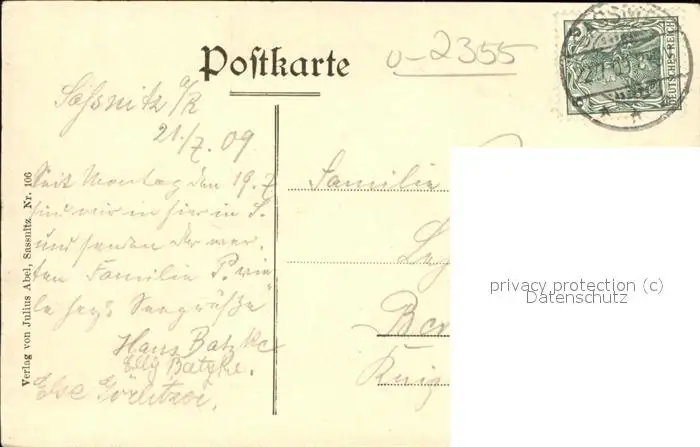 Postkarte
0-2355
DEUTSCHES REICH
Sassnitz a/R
21./7. 09
Seit Montag den 19.7
sind wir in hier in S.
und senden der wer-
ten Familie P. vie-
le herz. Seegrüße
Hans Batzke
Elly Batzke.
Else Görlitzer.
Verlag von Julius Abel, Sassnitz. Nr. 106
Familie
Ber
privacy protection (c)
Datenschutz